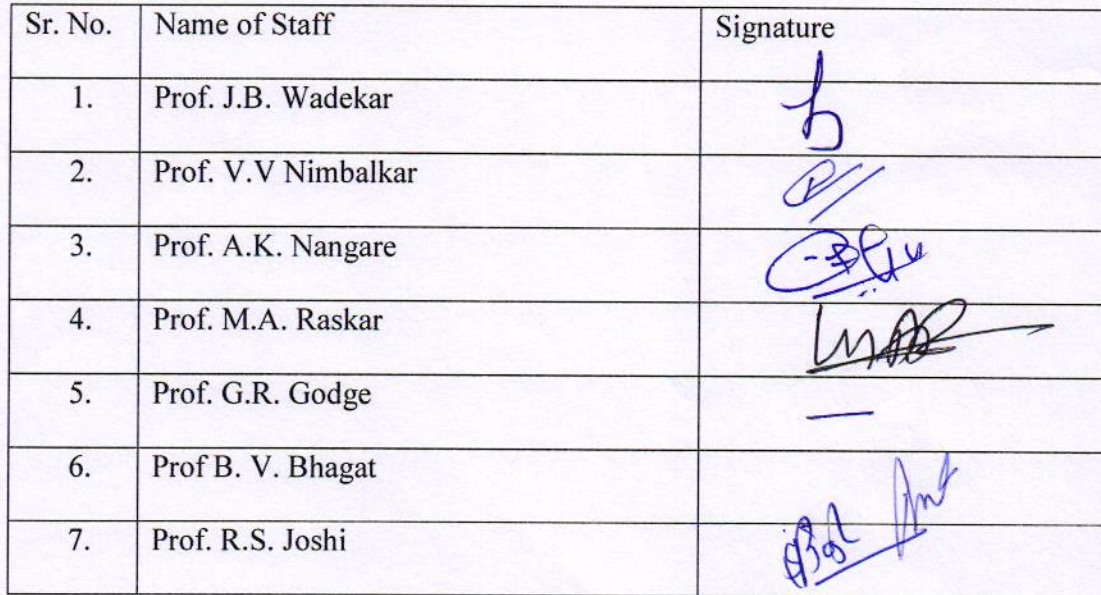 Sr. No. Name of Staff Signature
1. Prof. J.B. Wadekar
2. Prof. V.V Nimbalkar
3. Prof. A.K. Nangare
4. Prof. M.A. Raskar
5. Prof. G.R. Godge —
6. Prof B. V. Bhagat
7. Prof. R.S. Joshi